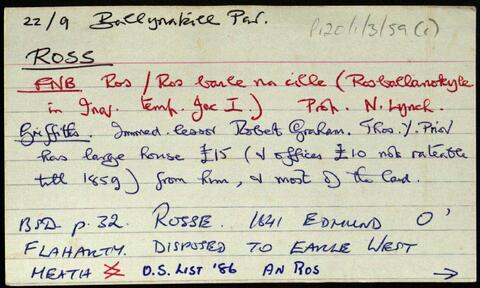 22/9 Ballynakill Par. P120/1/3/59 (1)
ROSS
FNB Ros / Ros baile na cille (Rosballanokyle
in Inq. temp. Jac I.) Prop. N. Lynch.
Griffiths. Immed. lessor Robert Graham. Thos. Y. Prior
has large house £15 (& offices £10 not ratentable
till 1859) from him, & most of the land.
BSD p. 32. ROSSE. 1641 EDMUND O'
FLAHARTY. DISPOSED TO EARLE WEST
MEATH O.S. LIST '86 AN ROS →